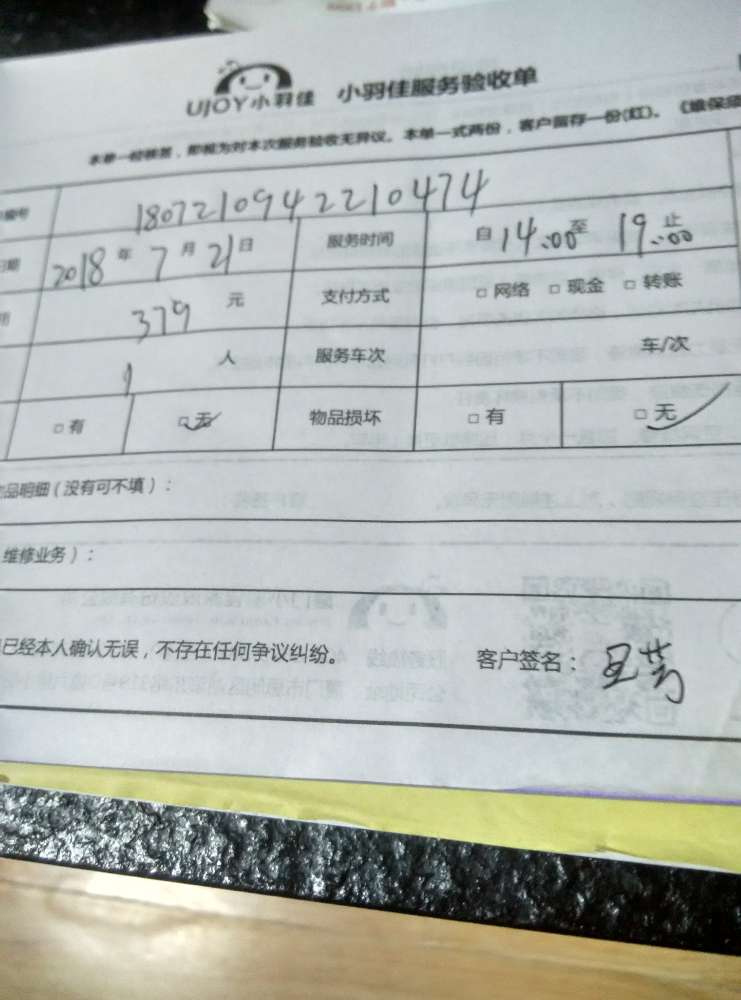 UJOY小羽佳 小羽佳服务验收单
本单一经签署，即视为对本次服务验收无异议。本单一式两份，客户留存一份(红)。《维保须
编号 1807210942210474
日期 2018 年 7 月 21 日 服务时间 自 14:00 至 19:00 止
用 379 元 支付方式 □ 网络 □ 现金 □ 转账
1 人 服务车次 车/次
□ 有 □ 无 物品损坏 □ 有 □ 无
品明细（没有可不填）：
维修业务）：
已经本人确认无误，不存在任何争议纠纷。 客户签名：王芸